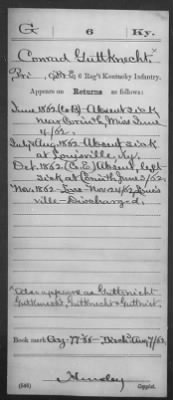 G 6 Ky.
Conrad Guttknecht
Pvt., Co. E, 6 Reg't Kentucky Infantry.
Appears on Returns as follows:
June 1862 (Co B) - Absent sick
near Corinth, Miss June
4/62.
July & Aug. 1862 Absent sick
at Louisville, Ky.
Oct. 1862 (Co. E) Absent, left
sick at Corinth June 2/62.
Nov. 1862 - Loss - Nov 24/62, Louis-
ville - Discharged.
Also appears as Guttknicht
Guttknecht, Gutknecht & Guttnist.
Book mark:
(546) Copyist.